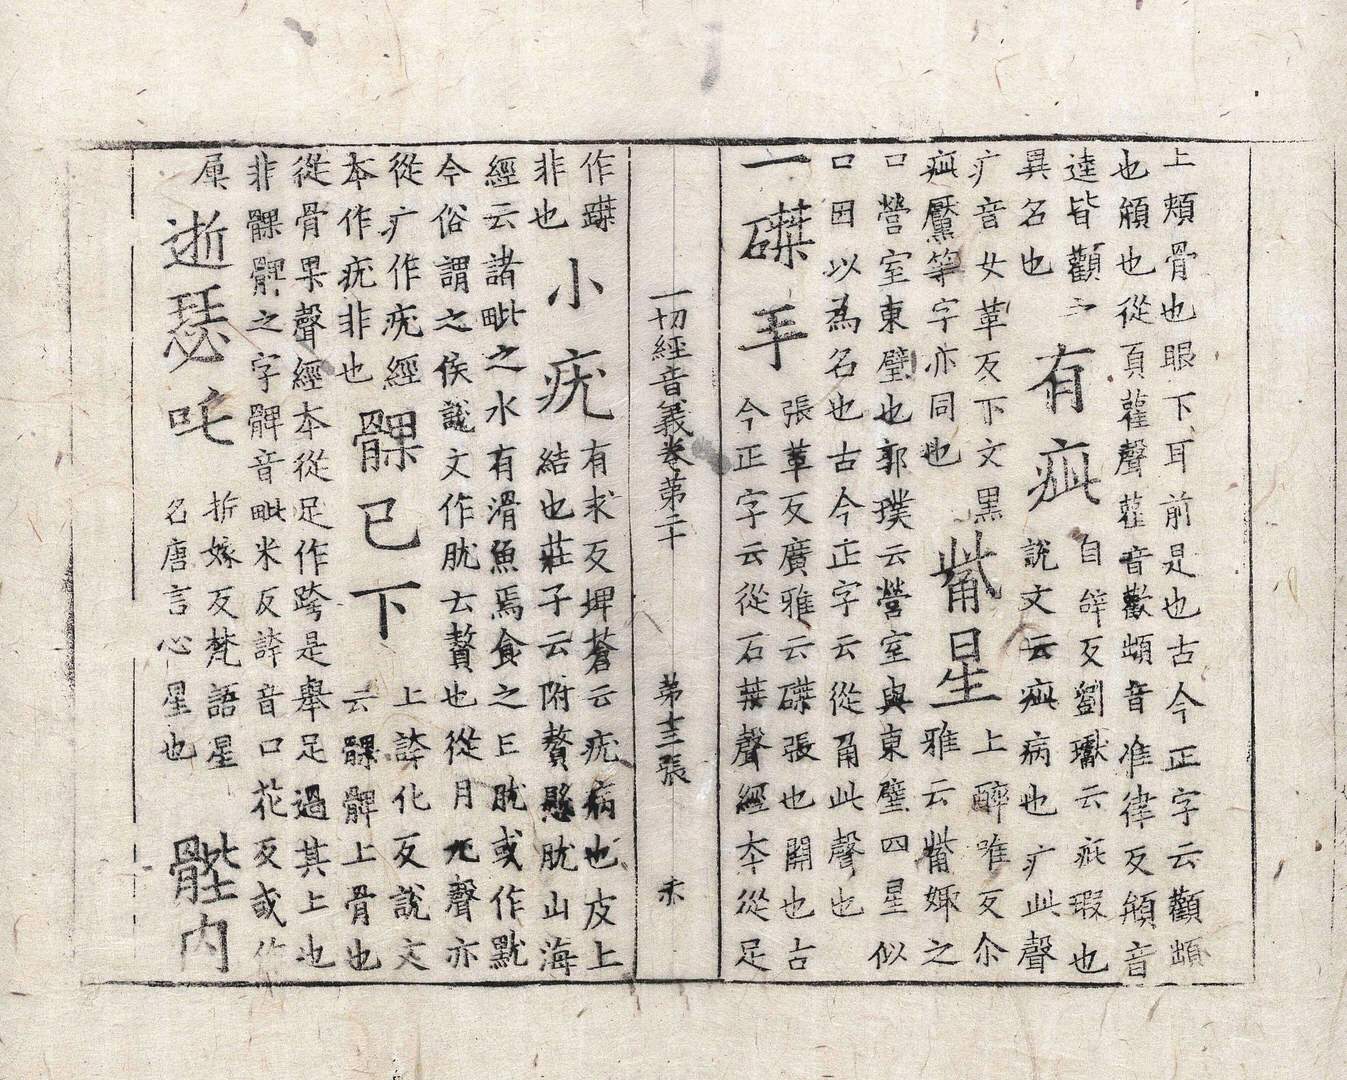 上頰骨也眼下耳前是也古今正字云顴頔
也頯也從頁雚聲雚音歡頔音准律反頯音
逵皆顴
異名也
有疵
自辝反劉瓛云疵瑕也
說文云疵病也疒此聲
疒音女革反下文黑
疵黶等字亦同也
觜星
上醉唯反尒
雅云觜娵之
口營室東壁也郭璞云營室與東壁四星似
口因以為名也古今正字云從角此聲也
一磔手
張革反廣雅云磔張也開也古
今正字云從石桀聲經本從足
一切經音義卷第二十
第十三張
作蹀
非也
小疣
有求反埤蒼云疣病也皮上
結也莊子云附贅懸肬山海
經云諸毗之水有滑魚焉食之已肬或作黕
今俗謂之侯說文作肬云贅也從月尤聲亦
從疒作疣經
本作疣非也
髁已下
上誇化反說文
云髁髀上骨也
從骨果聲經本從足作跨是舉足過其上也
非髁髀之字髀音毗米反誇音口花反或作
𡱂
逝瑟吒
折嫁反梵語星
名唐言心星也
髀內